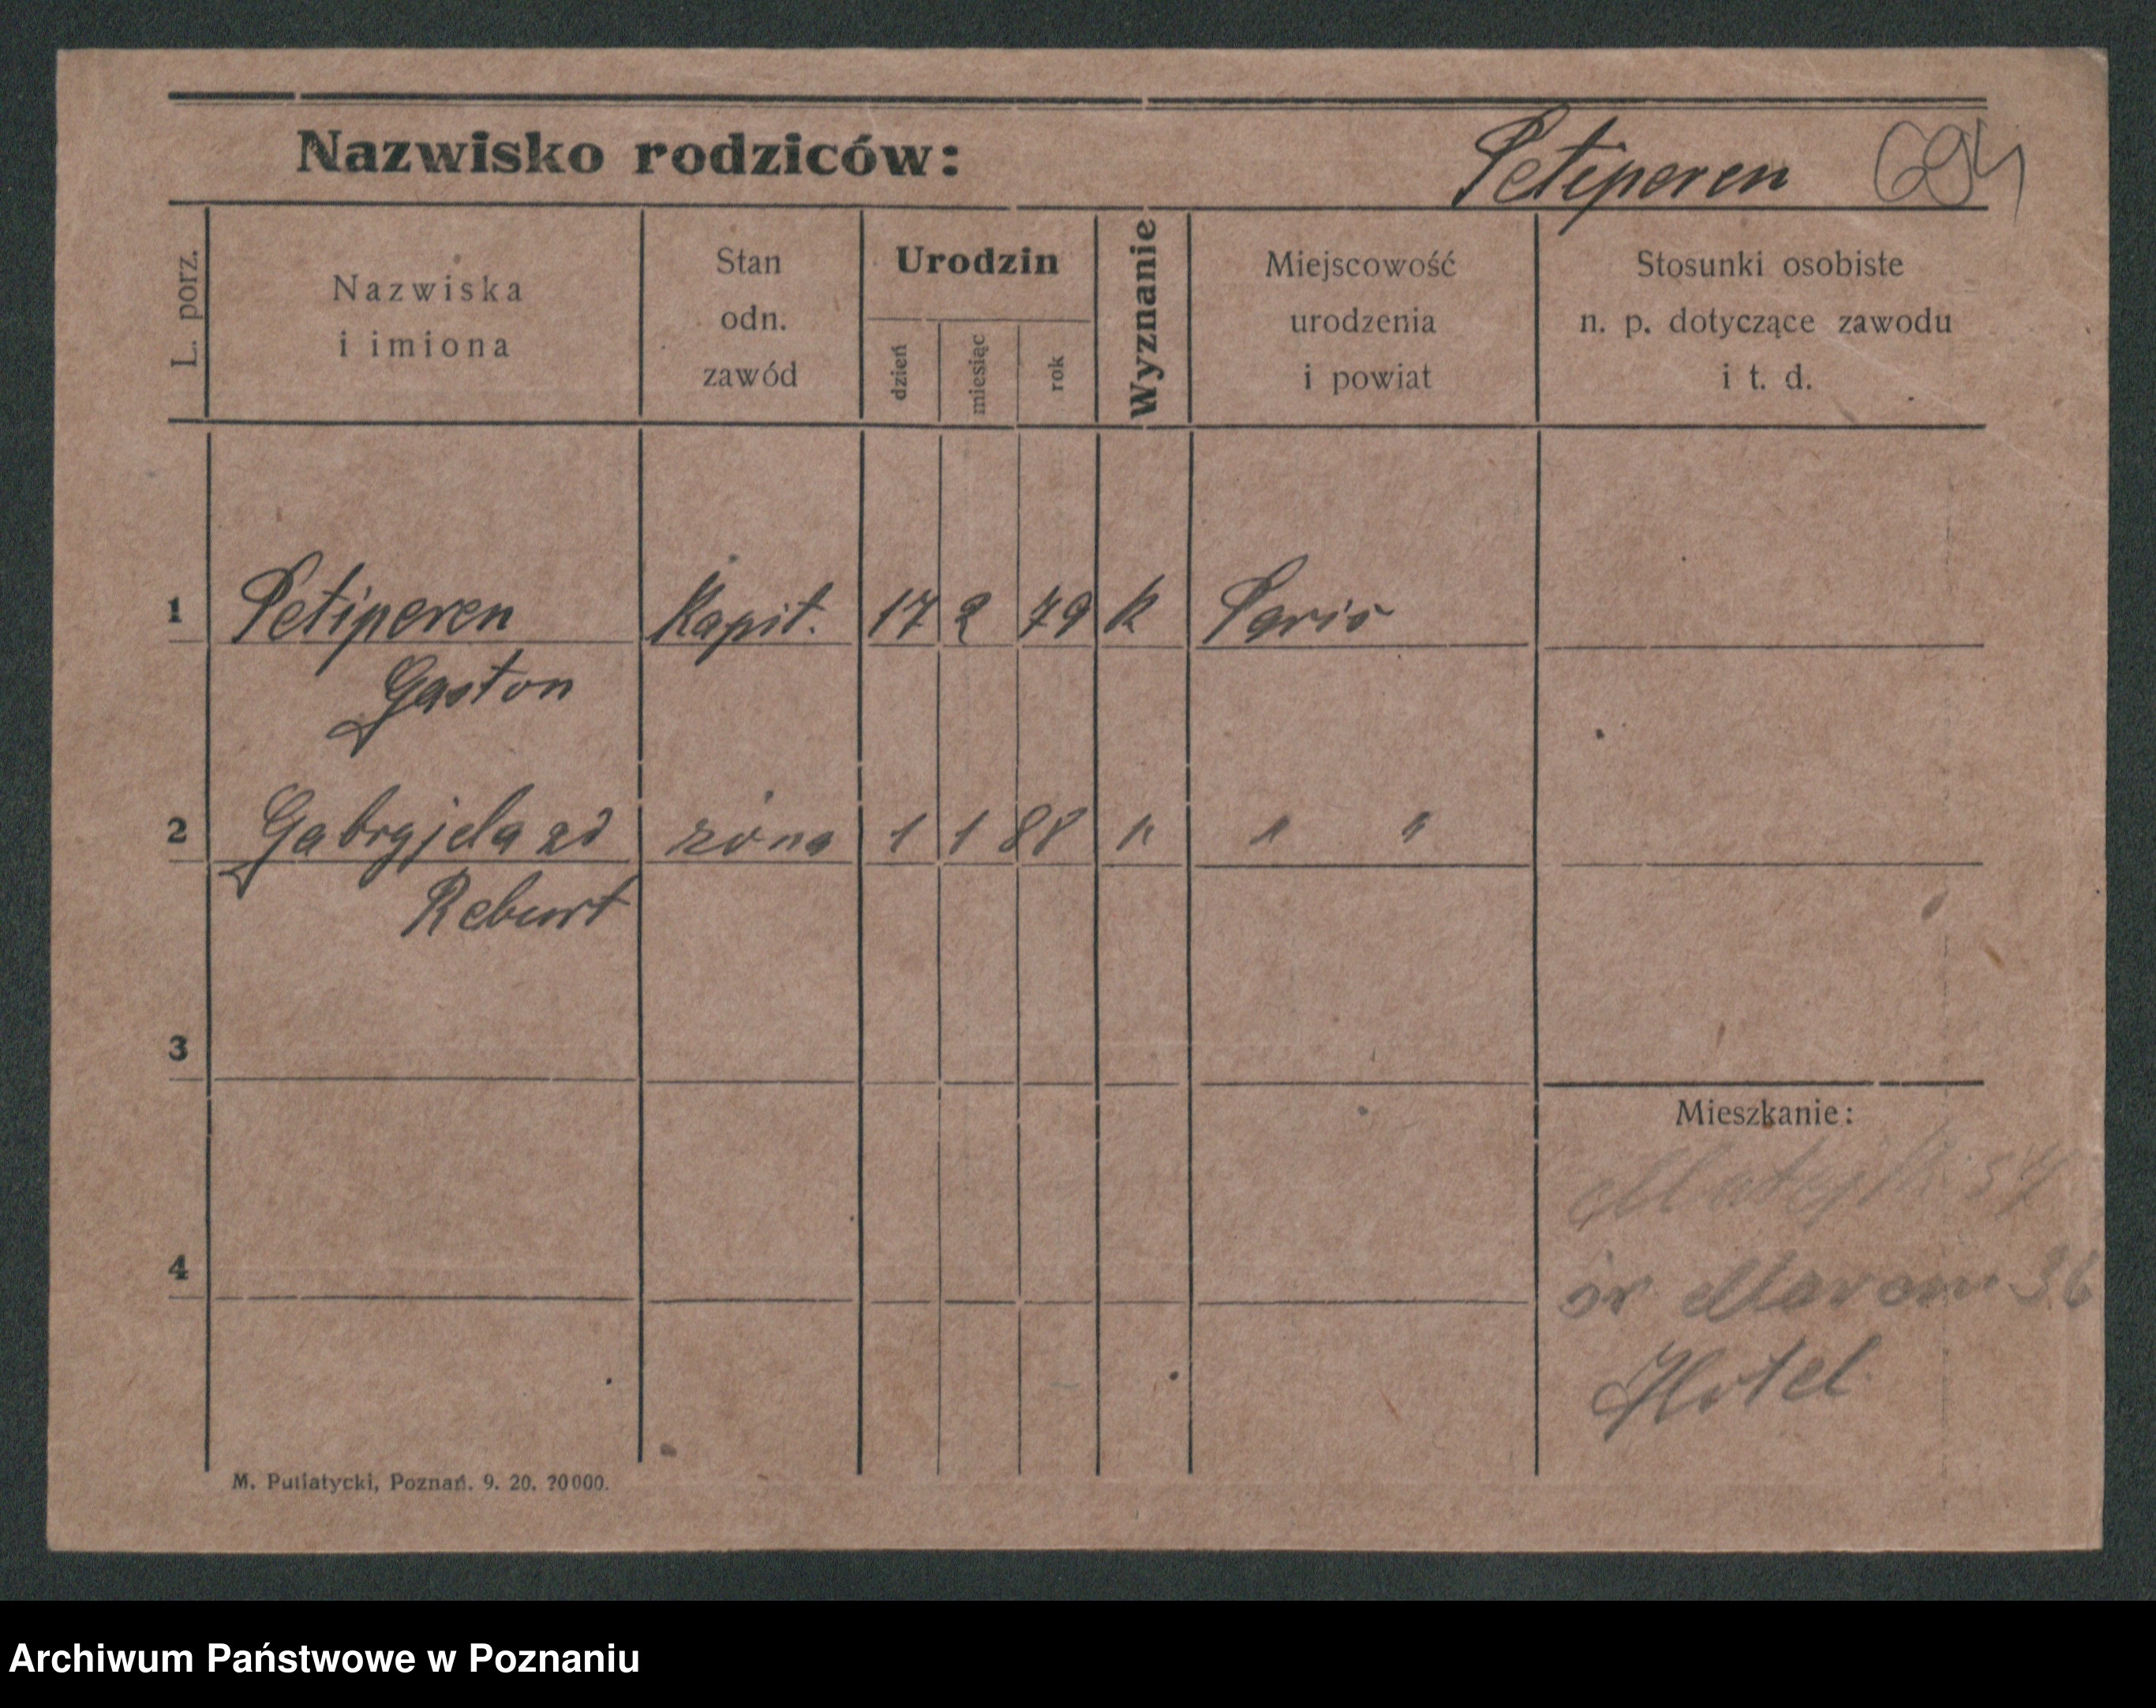 Nazwisko rodziców: Petiperen 694
L. porz.
Nazwiska
i imiona
Stan
odn.
zawód
Urodzin
dzień
miesiąc
rok
Wyznanie
Miejscowość
urodzenia
i powiat
Stosunki osobiste
n. p. dotyczące zawodu
i t. d.
1 Petiperen Kapit. 17 2 79 k Paris
Gaston
2 Gabryjela zd żona 1 1 88 " " "
Reburt
3
Mieszkanie:
Matejki 57
4
śv 36
Hotel
M. Putiatycki, Poznań. 9. 20. 20000.
Archiwum Państwowe w Poznaniu